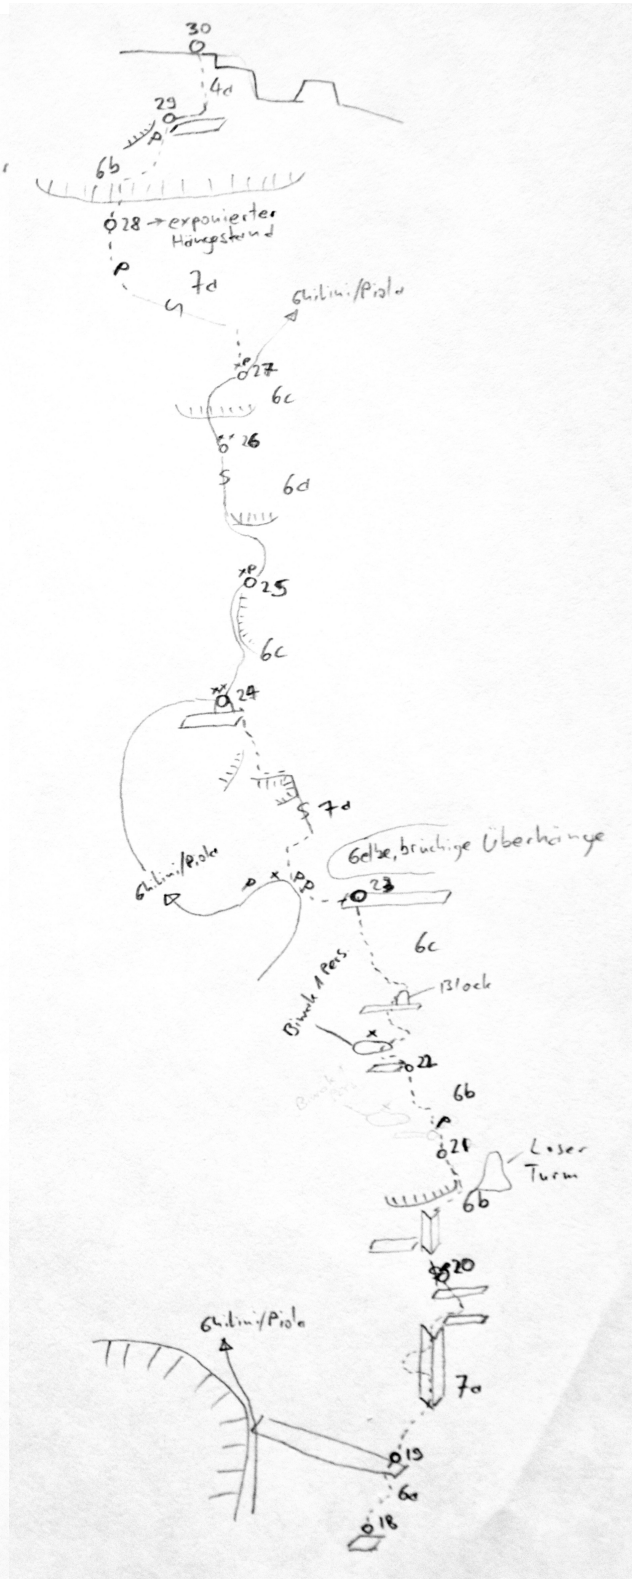 30
4a
29
P
6b
28 → exponierter
Hängestand
P
7a
Ghilini/Piola
xP
27
6c
26
6a
xP
25
6c
xx
24
7a
Gelbe, brüchige Überhänge
Ghilini/Piola
P x PP
23
6c
Block
Biwak 1 Pers.
x
22
6b
P
21
Loser
Turm
6b
20
Ghilini/Piola
7a
19
6a
18